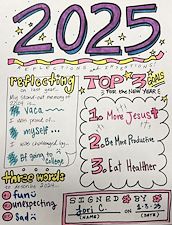 2025
REFLECTIONS & INTENTIONS
reflecting
on last year..
My stand-out memory of
2024 is...
Vaca
I was proud of...
myself...
I was challenged by...
Bf going to
College
three words
to describe 2024...
fun
unexpecting
sad
TOP 3 GOALS
for the NEW YEAR
1. More Jesus
2. Be More Productive
3. Eat Healthier
SIGNED BY
Jori C.
(NAME) (DATE)